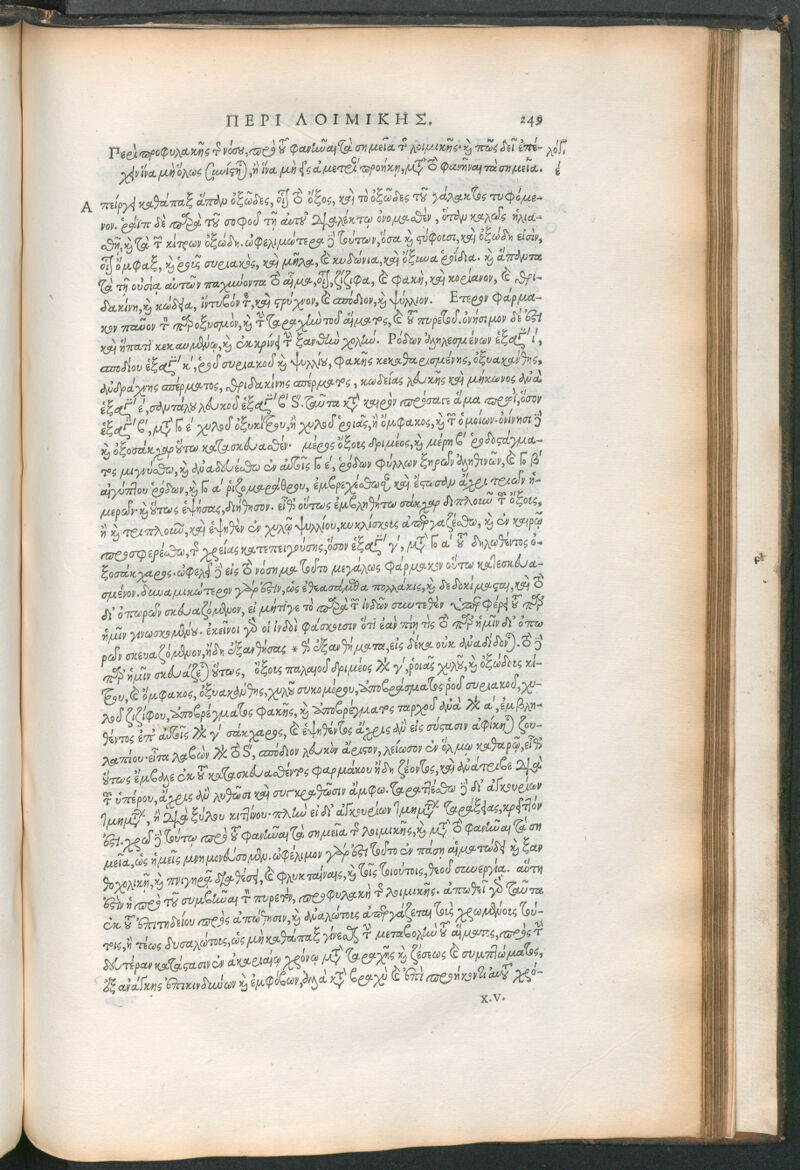 ΠΕΡΙ ΛΟΙΜΙΚΗΣ. 249
Περὶ προφυλακῆς τ νόσου, πρὸ τοῦ φανῆναι τὰ σημεῖα τ λοιμικῆς· καὶ πῶς δεῖ ἐπέ- λόγ
χειν ἵνα μὴ ὅλως , ἢ ἵνα μὴ εἰς ἀμετρί προήκῃ, μετὰ τὸ φανῆναι τὰ σημεῖα. ε
Α πείργει καθάπαξ ἅπαν ὀξῶδες, οἷον τὸ ὄξος, καὶ τὸ ὀξῶδες τοῦ γάλακτος τυφόμε-
νον. ῥάϊπ δὲ παρὰ τοῦ σοφοῦ τῇ αὐτοῦ διαλέκτῳ ὀνομασθὲν, ὅταν καλῶς ἡλια-
σθῇ, καὶ τὰ τ κίτρων ὀξώδη. ὠφελιμώτερα δὲ τούτων, ὅσα καὶ στύφουσι, καὶ ὀξώδη εἰσὶν,
οἷον ὄμφαξ, καὶ ῥοῦς συριακὸς, καὶ μῆλα, καὶ κυδώνια, καὶ ὄξινα ῥοίδια. καὶ ἅπαντα
τὰ τῇ οὐσίᾳ αὐτῶν παχύνοντα τὸ αἷμα, οἷον, ζίζιφα, καὶ φακῆ, καὶ κορίανον, καὶ θρι-
δακίνη, καὶ κώδεια, ἴντυβόν τε, καὶ στρύχνον, καὶ σπόδιον, καὶ ψύλλιον. Ἕτερον φάρμα-
κον παῦον τ παροξυσμὸν, καὶ τ ταραχὴν τοῦ αἵματος, καὶ τοῦ πυρετοῦ. ὀνήσιμον δέ ἐστι
καὶ ἥπατι κεκαυμένῳ, καὶ ἐκκρίνει τ ξανθὴν χολήν. Ῥόδων ἀληλεσμένων ἑξάγ ι,
σποδίου ἑξάγ κ, ῥοῦ συριακοῦ καὶ ψυλλίου, φακῆς κεκαθαρισμένης, ὀξυακάνθης,
ἀνδράχνης σπέρματος, θριδακίνης σπέρματος, κωδείας λευκῆς καὶ μήκωνος ἀνὰ
ἑξάγ ε, σανταλου λευκοῦ ἑξάγ β ς. ταῦτα κατὰ καιρὸν πρόσαγε ἅμα πρωῒ, ὅσον
ἑξάγ β, μετὰ ε χυλοῦ ὀξυκίτρου, ἢ χυλοῦ ῥοιᾶς, ἢ ὄμφακος, καὶ τ ὁμοίων. ὀνίνησι δὲ
καὶ ὀξοσάκχαρ οὕτω κατασκευασθέν. μέρος ὄξους δριμέος, καὶ μέρη β ῥοδοστάγμα-
τος μιγνύσθω, καὶ ἀναδευέσθω ἐν αὐτοῖς ε, ῥόδων φύλλων ξηρῶν ἀληθινῶν, καὶ β
αἰγύπτου ῥόδων, καὶ α ῥιζομαράθρου, ἐμβρεχέσθω δὲ καὶ ἔστωσαν ἄχρι τριῶν ἡ-
μερῶν· καὶ οὕτως ἑψήσας, διήθησον. εἶθ οὕτως ἐμβληθήτω σάκχαρ διπλοῦν τοῦ ὄξους,
ἢ καὶ τριπλοῦν, καὶ ἑψηθὲν ἐν χυλῷ ψυλλίου, κυκλίσκους ἀπεργαζέσθω, καὶ ἐν καιρῷ
προσφερέσθω, τ χρείας κατεπειγούσης, ὅσον ἑξάγ γ, μετὰ α τοῦ δηλωθέντος ὀ-
ξοσάκχαρος· ὠφελεῖ δὲ εἰς τὸ νόσημα τοῦτο μεγάλως φάρμακον οὕτω κατεσκευα-
σμένον. δυναμικώτερον γάρ ἐστιν, ὡς ἐθεασάμεθα πολλάκις, καὶ δεδοκίμασται, καὶ τὸ
δι' ὀπωρῶν σκευαζόμενον, εἰ μήτιγε τὸ παρὰ τ ἰνδῶν συντεθὲν ὑπερφέρει τοῦ παρ'
ἡμῖν γινωσκομένου. ἐκεῖνοι γὰρ οἱ ἰνδοὶ φάσκουσιν ὅτι ἐὰν πίῃ τις τὸ παρ' ἡμῖν δι' ὀπω
ρῶν σκευαζόμενον, ἤδη ἐξανθήσας * θ ἐξανθήματα, εἰς δέκα οὐκ ἀναδίδον. τὸ δὲ
παρ' ἡμῖν σκευάζεται οὕτως, ὄξους παλαιοῦ δριμέος γ, ῥοιᾶς χυλοῦ, καὶ ὀξώδους κί-
τρου, καὶ ὄμφακος, ὀξυακάνθης, χυλοῦ συκομόρου, ἀποβράσματος ῥοῦ συριακοῦ, χυ-
λοῦ ζιζίφου, ἀποβρέγματος φακῆς, καὶ ἀποβρέγματος ταρχοῦ ἀνὰ α, ἐμβλη-
θέντος ἐπ' αὐτοῖς γ σάκχαρος, καὶ ἑψηθέντος ἄχρις ἂν εἰς σύστασιν ἀφίκηται ζου-
λαπίου· εἶτα λαβὼν τὸ ς, σπόδιον λευκὸν ἄριστον, λείωσον ἐν ὅλμῳ καθαρῷ, εἶθ
οὕτως ἔμβαλε ἐκ τοῦ κατασκευασθέντος φαρμάκου ἤδη ζέοντος, καὶ ἀνάτριβε διὰ
τ ὑπέρου, ἄχρις ἂν λυθῶσι καὶ συγκραθῶσιν ἄμφω. ταραττέσθω δὲ δι' ἀγκυρίων
, ἢ διὰ ξύλου κιτίνου· πλὴν εἰ δι' ἀγκυρίων ταράξεις, κρεῖττόν
ἐστι. χρῶ δὲ τούτῳ πρὸ τοῦ φανῆναι τὰ σημεῖα τ λοιμικῆς, καὶ μετὰ τὸ φανῆναι τὰ ση
μεῖα, ὡς ἡμεῖς μνημονεύσομεν. ὠφέλιμον γάρ ἐστι τοῦτο ἐν πάσῃ αἱματώδει καὶ ξαν
θοχολικῇ, καὶ πνιγηρᾷ διαθέσει, καὶ φλυκταίναις, καὶ τοῖς τοιούτοις, θεοῦ συνεργίᾳ. αὕτη
ἐστὶν ἡ πρὸ τοῦ συμβῆναι τ πυρετὸν, προφυλακὴ τ λοιμικῆς. ἀπωθεῖ γὰρ ταῦτα
ἐκ τοῦ ἐπιτηδείου πρὸς ἀπώθησιν, καὶ ἀναλώτους ἀπεργάζεται τοὺς χρωμένους τού-
τοις, ἢ τέως δυσαλώτους, ὡς μὴ καθάπαξ γίνεσθαι τ μεταβολὴν τοῦ αἵματος, πρὸς τ
δευτέραν κατάστασιν ἐν ἀκαριαίῳ χρόνῳ μετὰ ταραχῆς καὶ ζέσεως καὶ συμπτώματος,
ἐξ ἀνάγκης ἐπικινδύνων καὶ ἐμφόβων, ἀλλὰ κατὰ βραχὺ καὶ ἐπὶ προήκοντι αὐτοῦ χρό-
X.V.